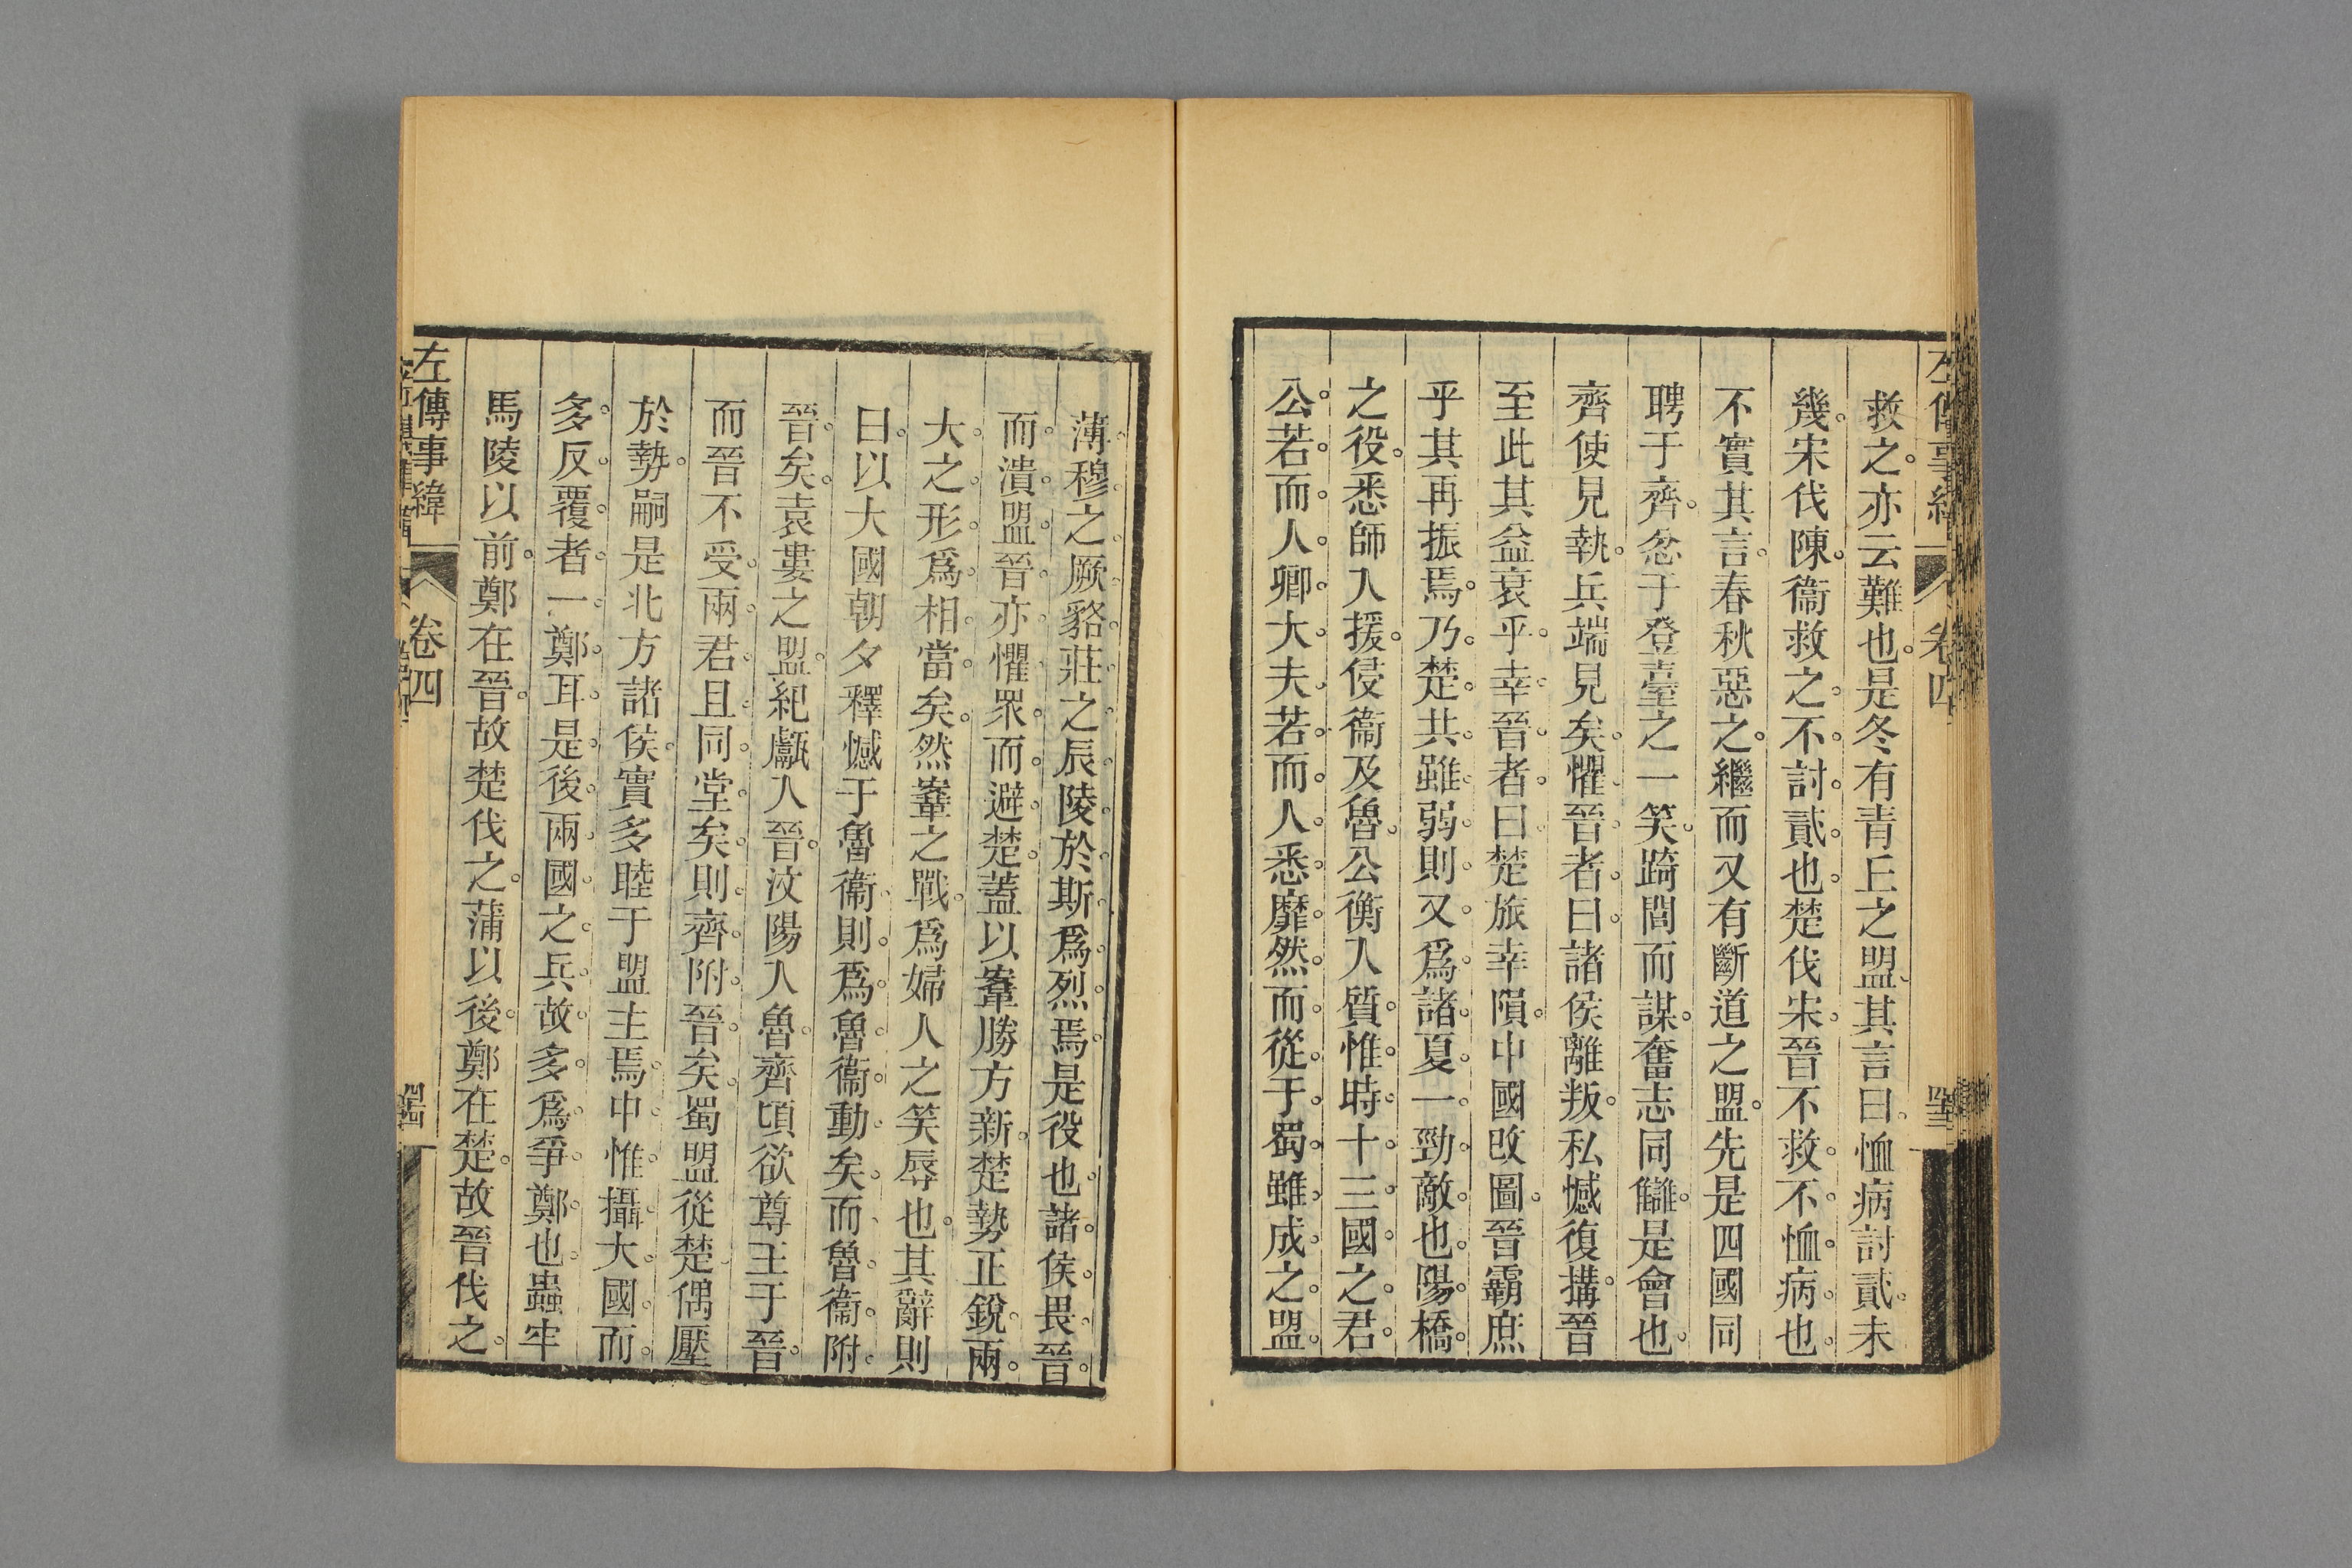 左傳事緯 卷四
救之亦云難也是冬有青丘之盟其言曰恤病討貳未
幾宋伐陳衞救之不討貳也楚伐宋晉不救不恤病也
不實其言春秋惡之繼而又有斷道之盟先是四國同
聘于齊忿于登臺之一笑踦閭而謀奮志同讎是會也
齊使見執兵端見矣懼晉者曰諸侯離叛私憾復搆晉
至此其益衰乎幸晉者曰楚旅幸隕中國改圖晉霸庶
乎其再振焉乃楚共雖弱則又爲諸夏一勁敵也陽橋
之役悉師入援侵衞及魯公衡入質惟時十三國之君
公若而人卿大夫若而人悉靡然而從于蜀雖成之盟
薄穆之厥貉莊之辰陵於斯爲烈焉是役也諸侯畏晉
而潰盟晉亦懼眾而避楚蓋以鞌勝方新楚勢正銳兩
大之形爲相當矣然鞌之戰爲婦人之笑辱也其辭則
曰以大國朝夕釋憾于魯衞則爲魯衞動矣而魯衞附
晉矣袁婁之盟紀甗入晉汶陽入魯齊頃欲尊王于晉
而晉不受兩君且同堂矣則齊附晉矣蜀盟從楚偶壓
於勢嗣是北方諸侯實多睦于盟主焉中惟攝大國而
多反覆者一鄭耳是後兩國之兵故多爲爭鄭也蟲牢
馬陵以前鄭在晉故楚伐之蒲以後鄭在楚故晉伐之
左傳事緯 卷四